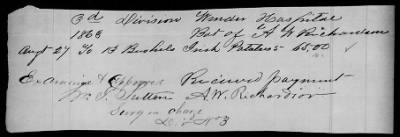 3d Division Winder Hospital
1863 Bot of A W Richardson
Augt 27 To 13 Bushels Irish Potatoes 65.00
Examined & Approved Received payment
Wm. J. Sutton A.W. Richardson
Surg in charge
Div No 3